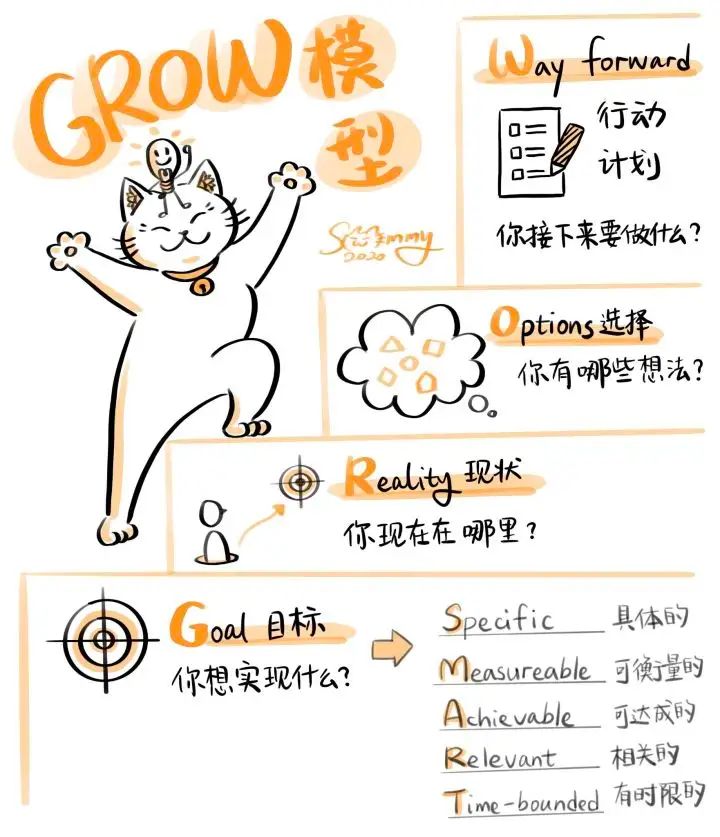 GROW模型
Way forward
行动
计划
你接下来要做什么?
2020
Options选择
你有哪些想法?
Reality 现状
你现在在哪里?
Goal 目标
你想实现什么?
Specific 具体的
Measureable 可衡量的
Achievable 可达成的
Relevant 相关的
Time-bounded 有时限的